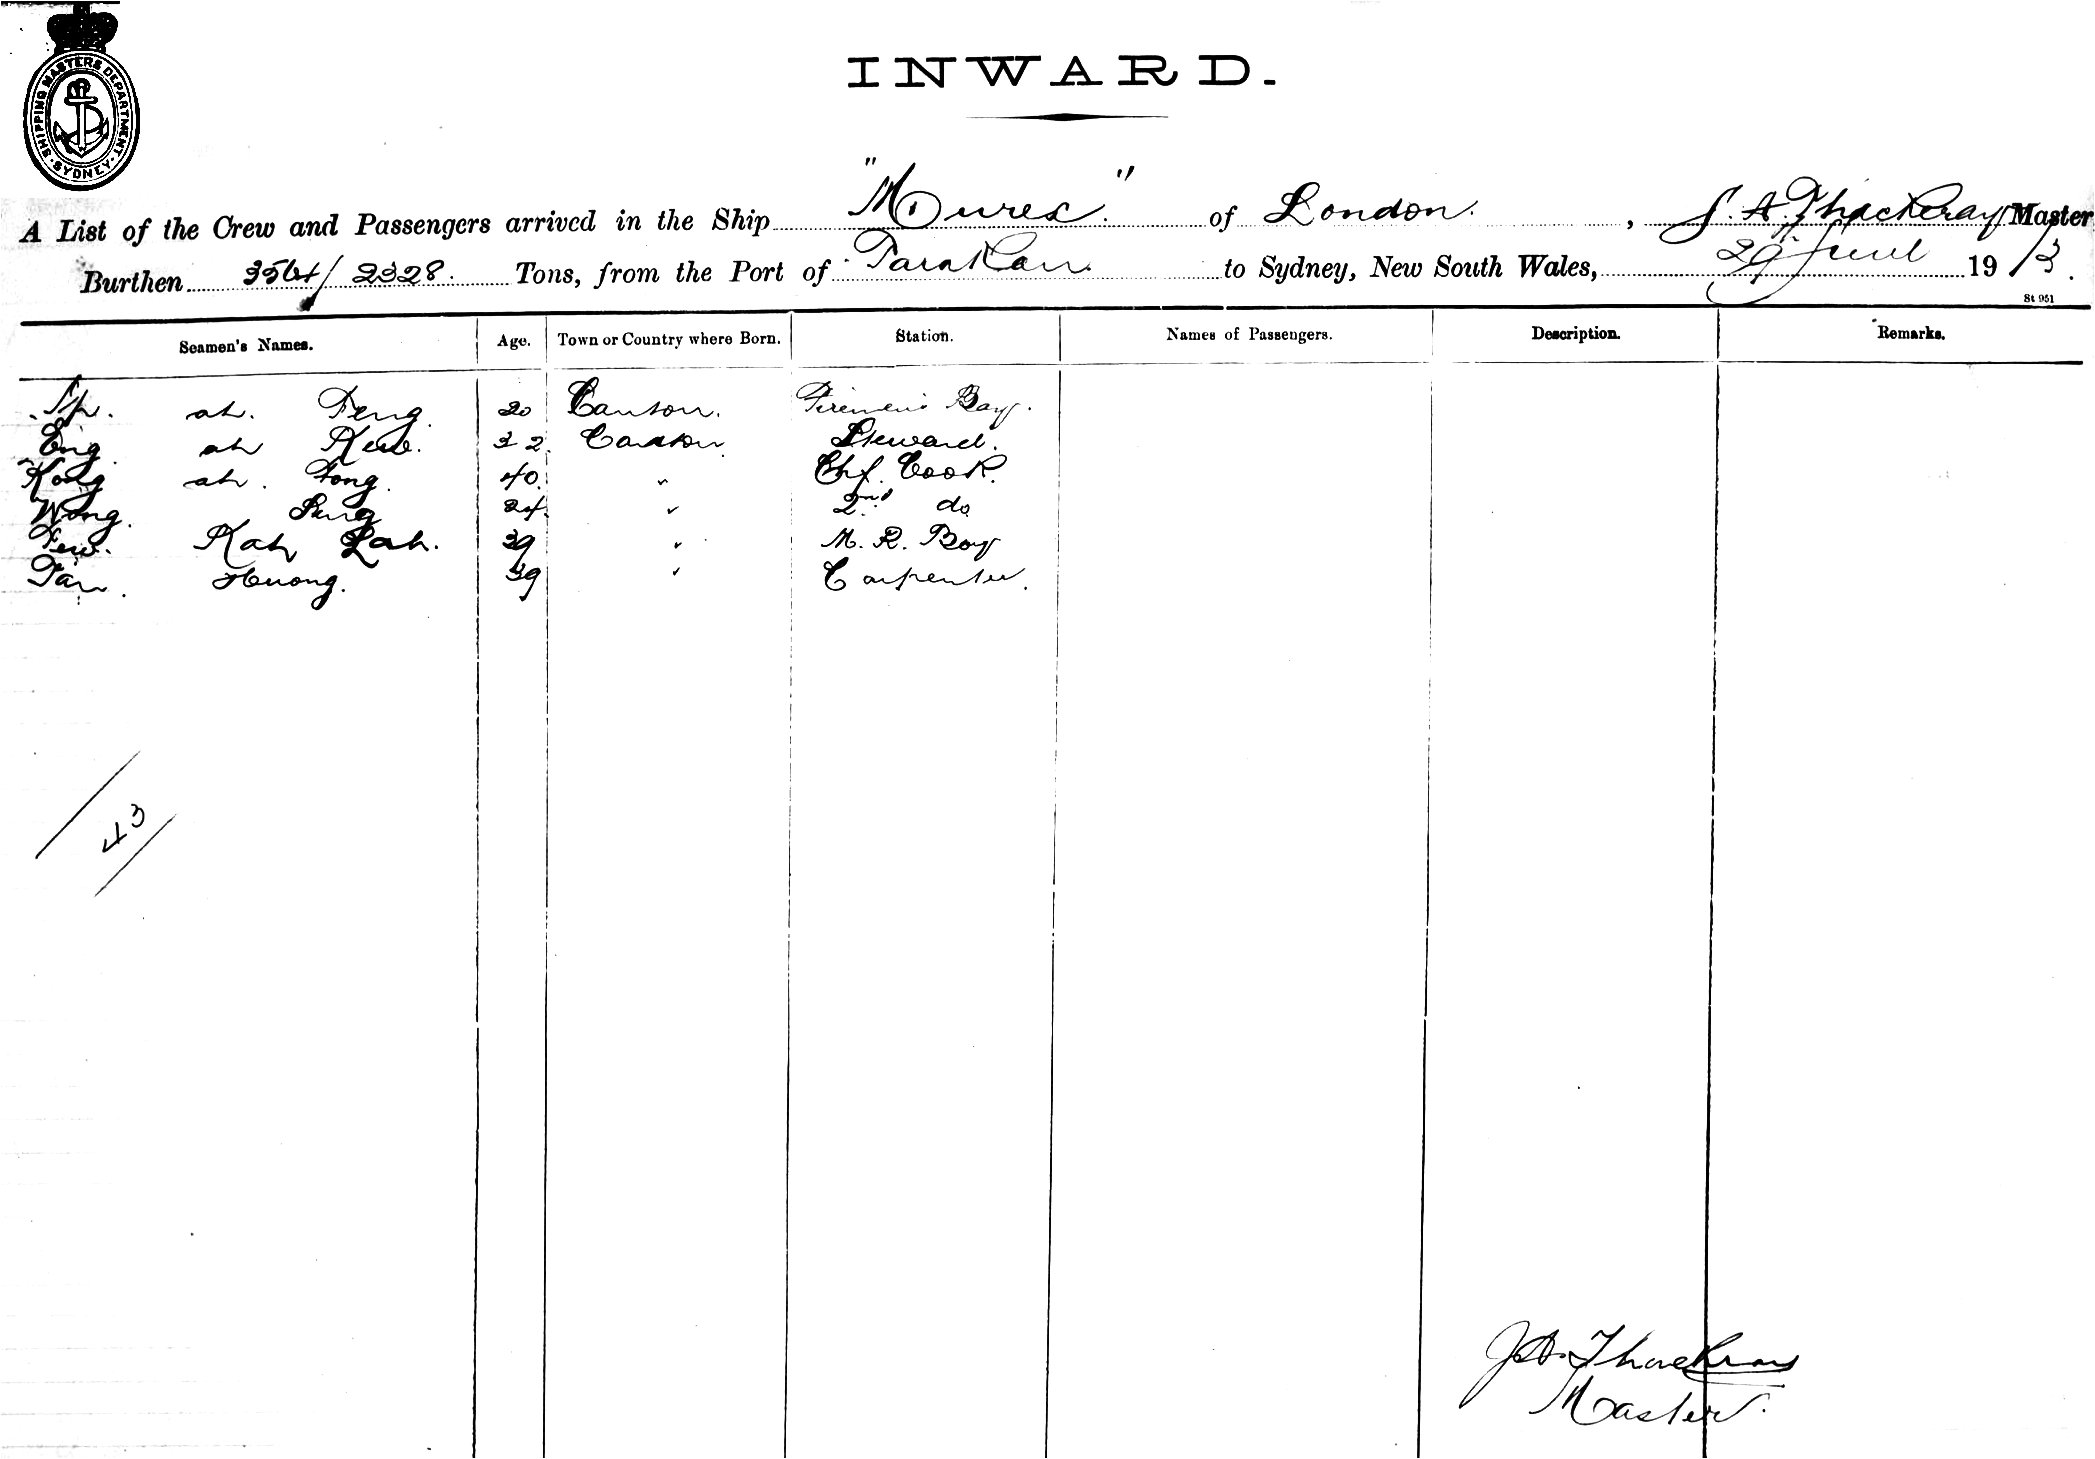 SHIPPING MASTERS DEPARTMENT · SYDNEY ·
INWARD.
A List of the Crew and Passengers arrived in the Ship "Murex" of London. , J. A. Thackeray Master
Burthen 3564/2328. Tons, from the Port of Tarakan. to Sydney, New South Wales, 29th June 1913.
St 951
Seamen's Names. Age. Town or Country where Born. Station. Names of Passengers. Description. Remarks.
ah. Feng 20 Canton. Firemen's Boy.
Eng ah Kew. 32 Canton Steward.
Kong ah. Fong. 40. " Chf. Cook.
Wong. Sung 24. " 2nd do
Few. Kah Lah. 39 " M. R. Boy
Tan. Huong. 39 " Carpenter.
43
J. A. Thackeray
Master.